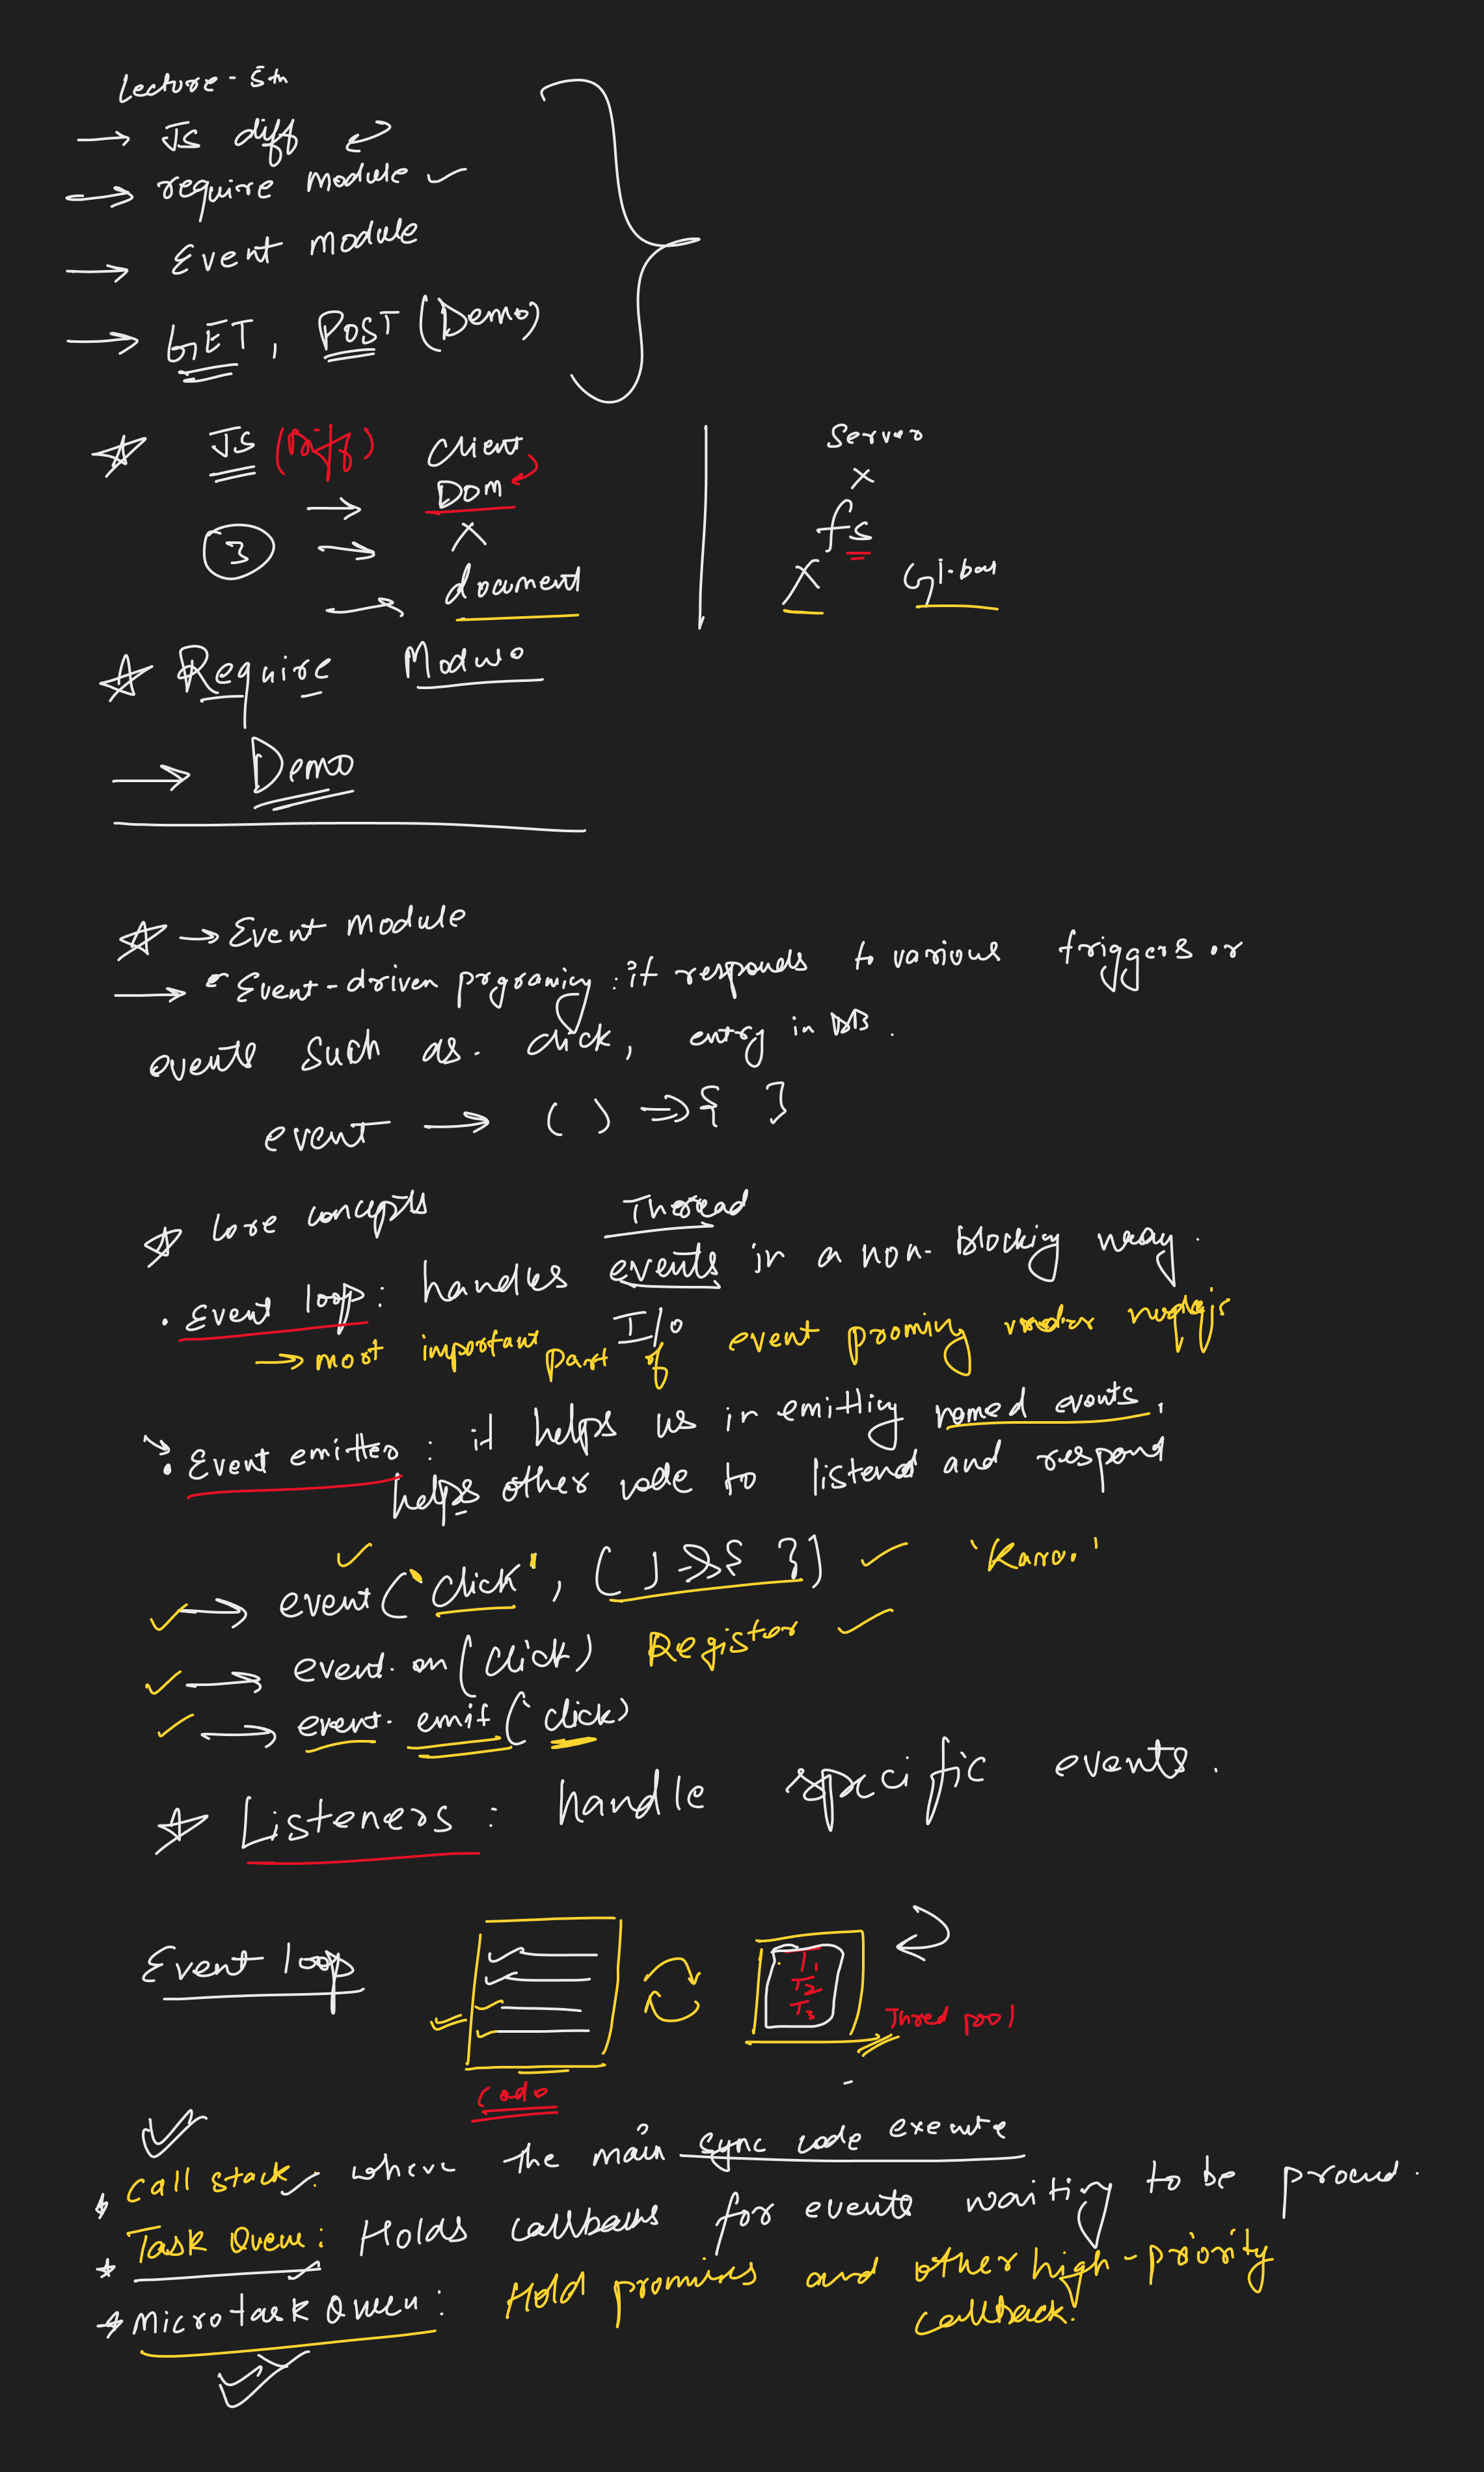 Lecture - 5th
→ JS diff
→ require module ✓
→ Event module
→ GET, POST (Demo)
☆ JS (Diff) Client | Server
→ DOM X
3 → X fs
→ document X
☆ Require
→ Demo
☆ → Event module
→ Event-driven : it responds to various triggers or
events such as. click, entry in DB.
event → ( ) => { }
☆ Core concepts
Thread
• Event loop : handles events in a non-blocking way.
I/O
→ most important part of event
• Event emitter : it helps us in emitting named events.
helps other code to listend and respond
✓ → event ("click", ( ) => { }) ✓
✓ → event.on (click) Register ✓
✓ → event.emit ('click)
☆ Listeners : handle specific events.
Event loop
T1
T2
T3
Thred pool
Code
☆ Call stack : where the main sync code execute
☆ Task Queue : Holds callbacks for events waiting to be
→ Microtask Queue : Hold promises and other high-priority
callback.